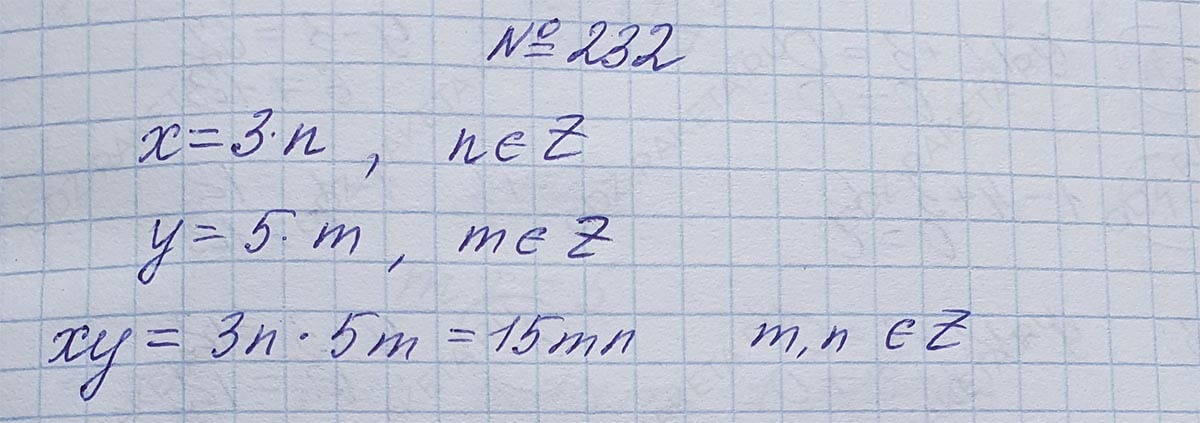 № 232
x = 3·n , n ∈ Z
y = 5·m , m ∈ Z
xy = 3n · 5m = 15mn m, n ∈ Z